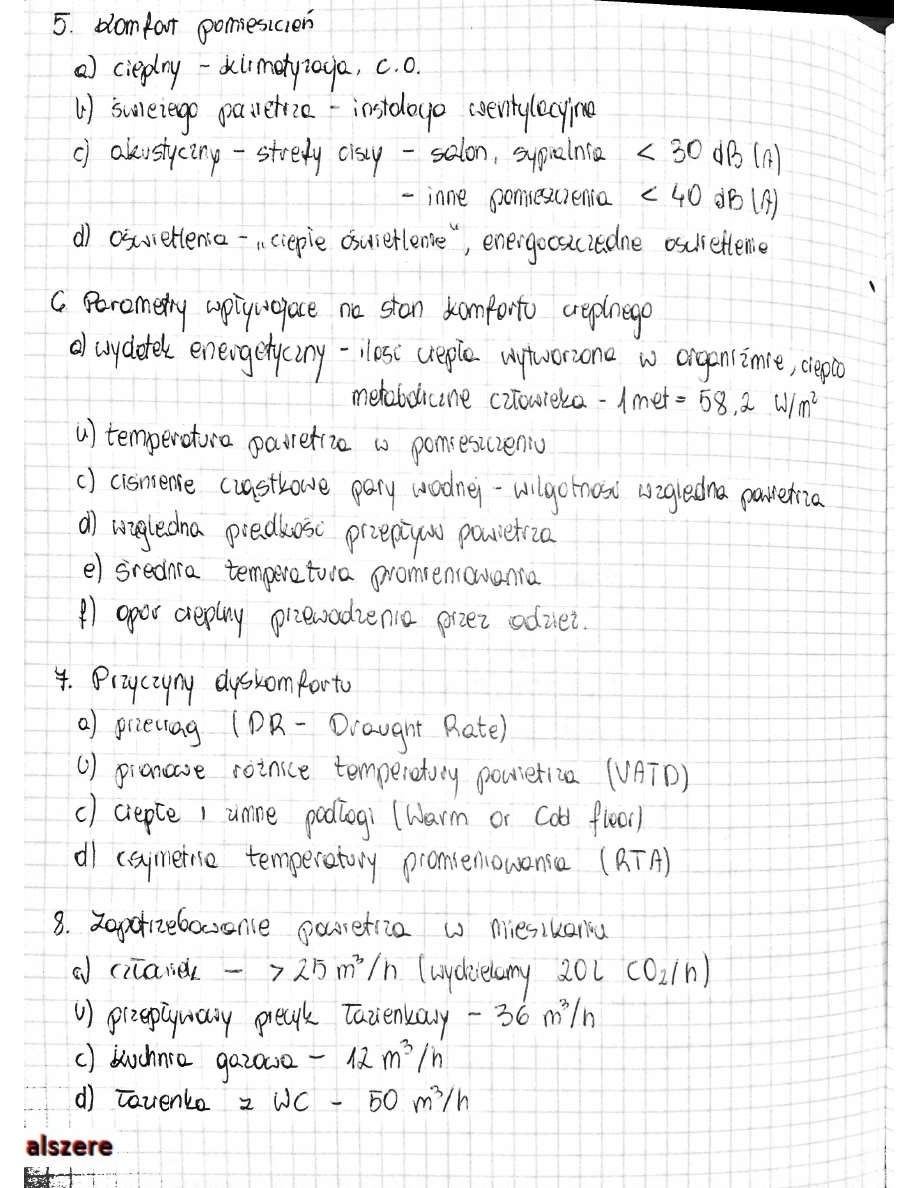 5. Komfort pomieszczeń
a) cieplny - klimatyzacja, C.O.
b) świeżego powietrza - instalacja wentylacyjna
c) akustyczny - strefy ciszy - salon, sypialnia < 30 dB (A)
- inne pomieszczenia < 40 dB (A)
d) oświetlenia - „ciepłe oświetlenie", energooszczędne oświetlenie
6 Parametry wpływające na stan komfortu cieplnego
a) wydatek energetyczny - ilość ciepła wytworzona w organiźmie, ciepło
metaboliczne człowieka - 1 met = 58,2 W/m²
b) temperatura powietrza w pomieszczeniu
c) ciśnienie cząstkowe pary wodnej - wilgotność względna powietrza
d) względna prędkość przepływu powietrza
e) średnia temperatura promieniowania
f) opór cieplny przewodzenia przez odzież.
7. Przyczyny dyskomfortu
a) przeciąg (DR - Draught Rate)
b) pionowe różnice temperatury powietrza (VATD)
c) ciepłe i zimne podłogi (Warm or Cold floor)
d) asymetria temperatury promieniowania (RTA)
8. Zapotrzebowanie powietrza w mieszkaniu
a) człowiek - > 25 m³/h (wydzielamy 20l CO₂/h)
b) przepływowy piecyk łazienkowy - 36 m³/h
c) kuchnia gazowa - 12 m³/h
d) łazienka z WC - 50 m³/h
alszere